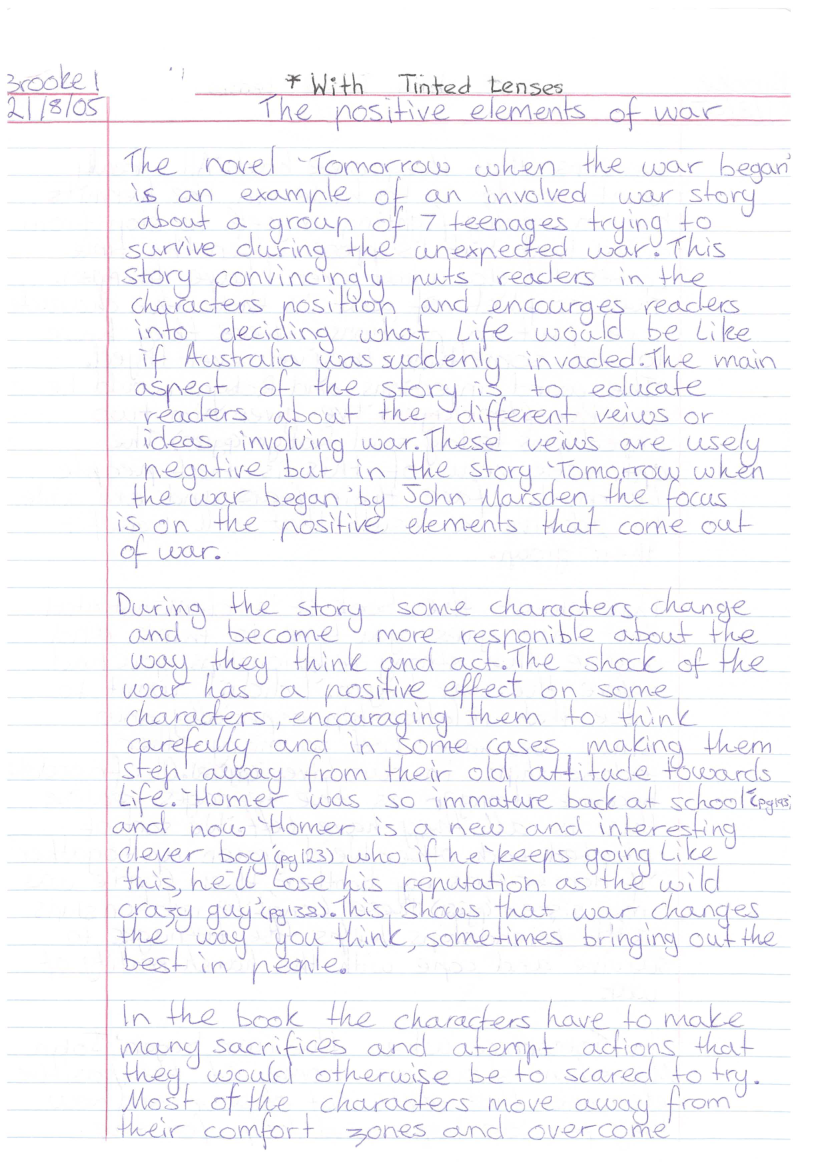 Brooke!
* With Tinted Lenses
21/8/05
The positive elements of war
The novel 'Tomorrow when the war began'
is an example of an involved war story
about a group of 7 teenages trying to
survive during the unexpected war. This
story convincingly puts readers in the
characters position and encourges readers
into deciding what life would be like
if Australia was suddenly invaded. The main
aspect of the story is to educate
readers about the different veiws or
ideas involving war. These veiws are usely
negative but in the story 'Tomorrow when
the war began' by John Marsden, the focus
is on the positive elements that come out
of war.
During the story some characters change
and become more responible about the
way they think and act. The shock of the
war has a positive effect on some
characters, encouraging them to think
carefully and in some cases making them
step away from their old attitude towards
life. 'Homer was so immature back at school'
and now 'Homer is a new and interesting
clever boy'(pg123) who if he 'keeps going like
this, he'll lose his reputation as the wild
crazy guy'(pg138). This shows that war changes
the way you think, sometimes bringing out the
best in people.
In the book the characters have to make
many sacrifices and atempt actions that
they would otherwise be to scared to try.
Most of the characters move away from
their comfort zones and overcome